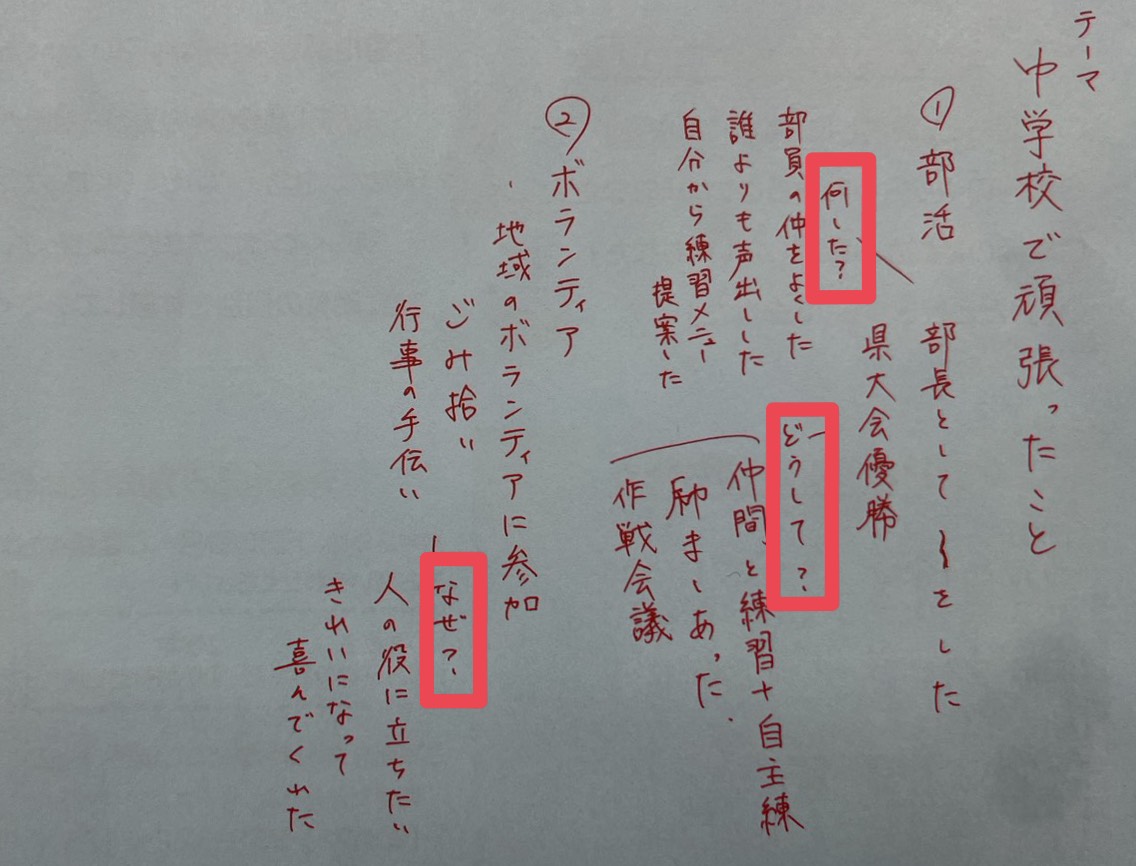 テーマ
中学校で頑張ったこと
①部活
部長として〜をした
県大会優勝
何した？
部員の仲をよくした
誰よりも声出しした
自分から練習メニュー
提案した
どうして？
仲間と練習+自主練
励ましあった.
作戦会議
②ボランティア
・地域のボランティアに参加
ごみ拾い
行事の手伝い
なぜ？
人の役に立ちたい
きれいになって
喜んでくれた